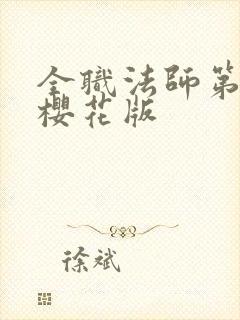 全職法師第
櫻花版
徐斌